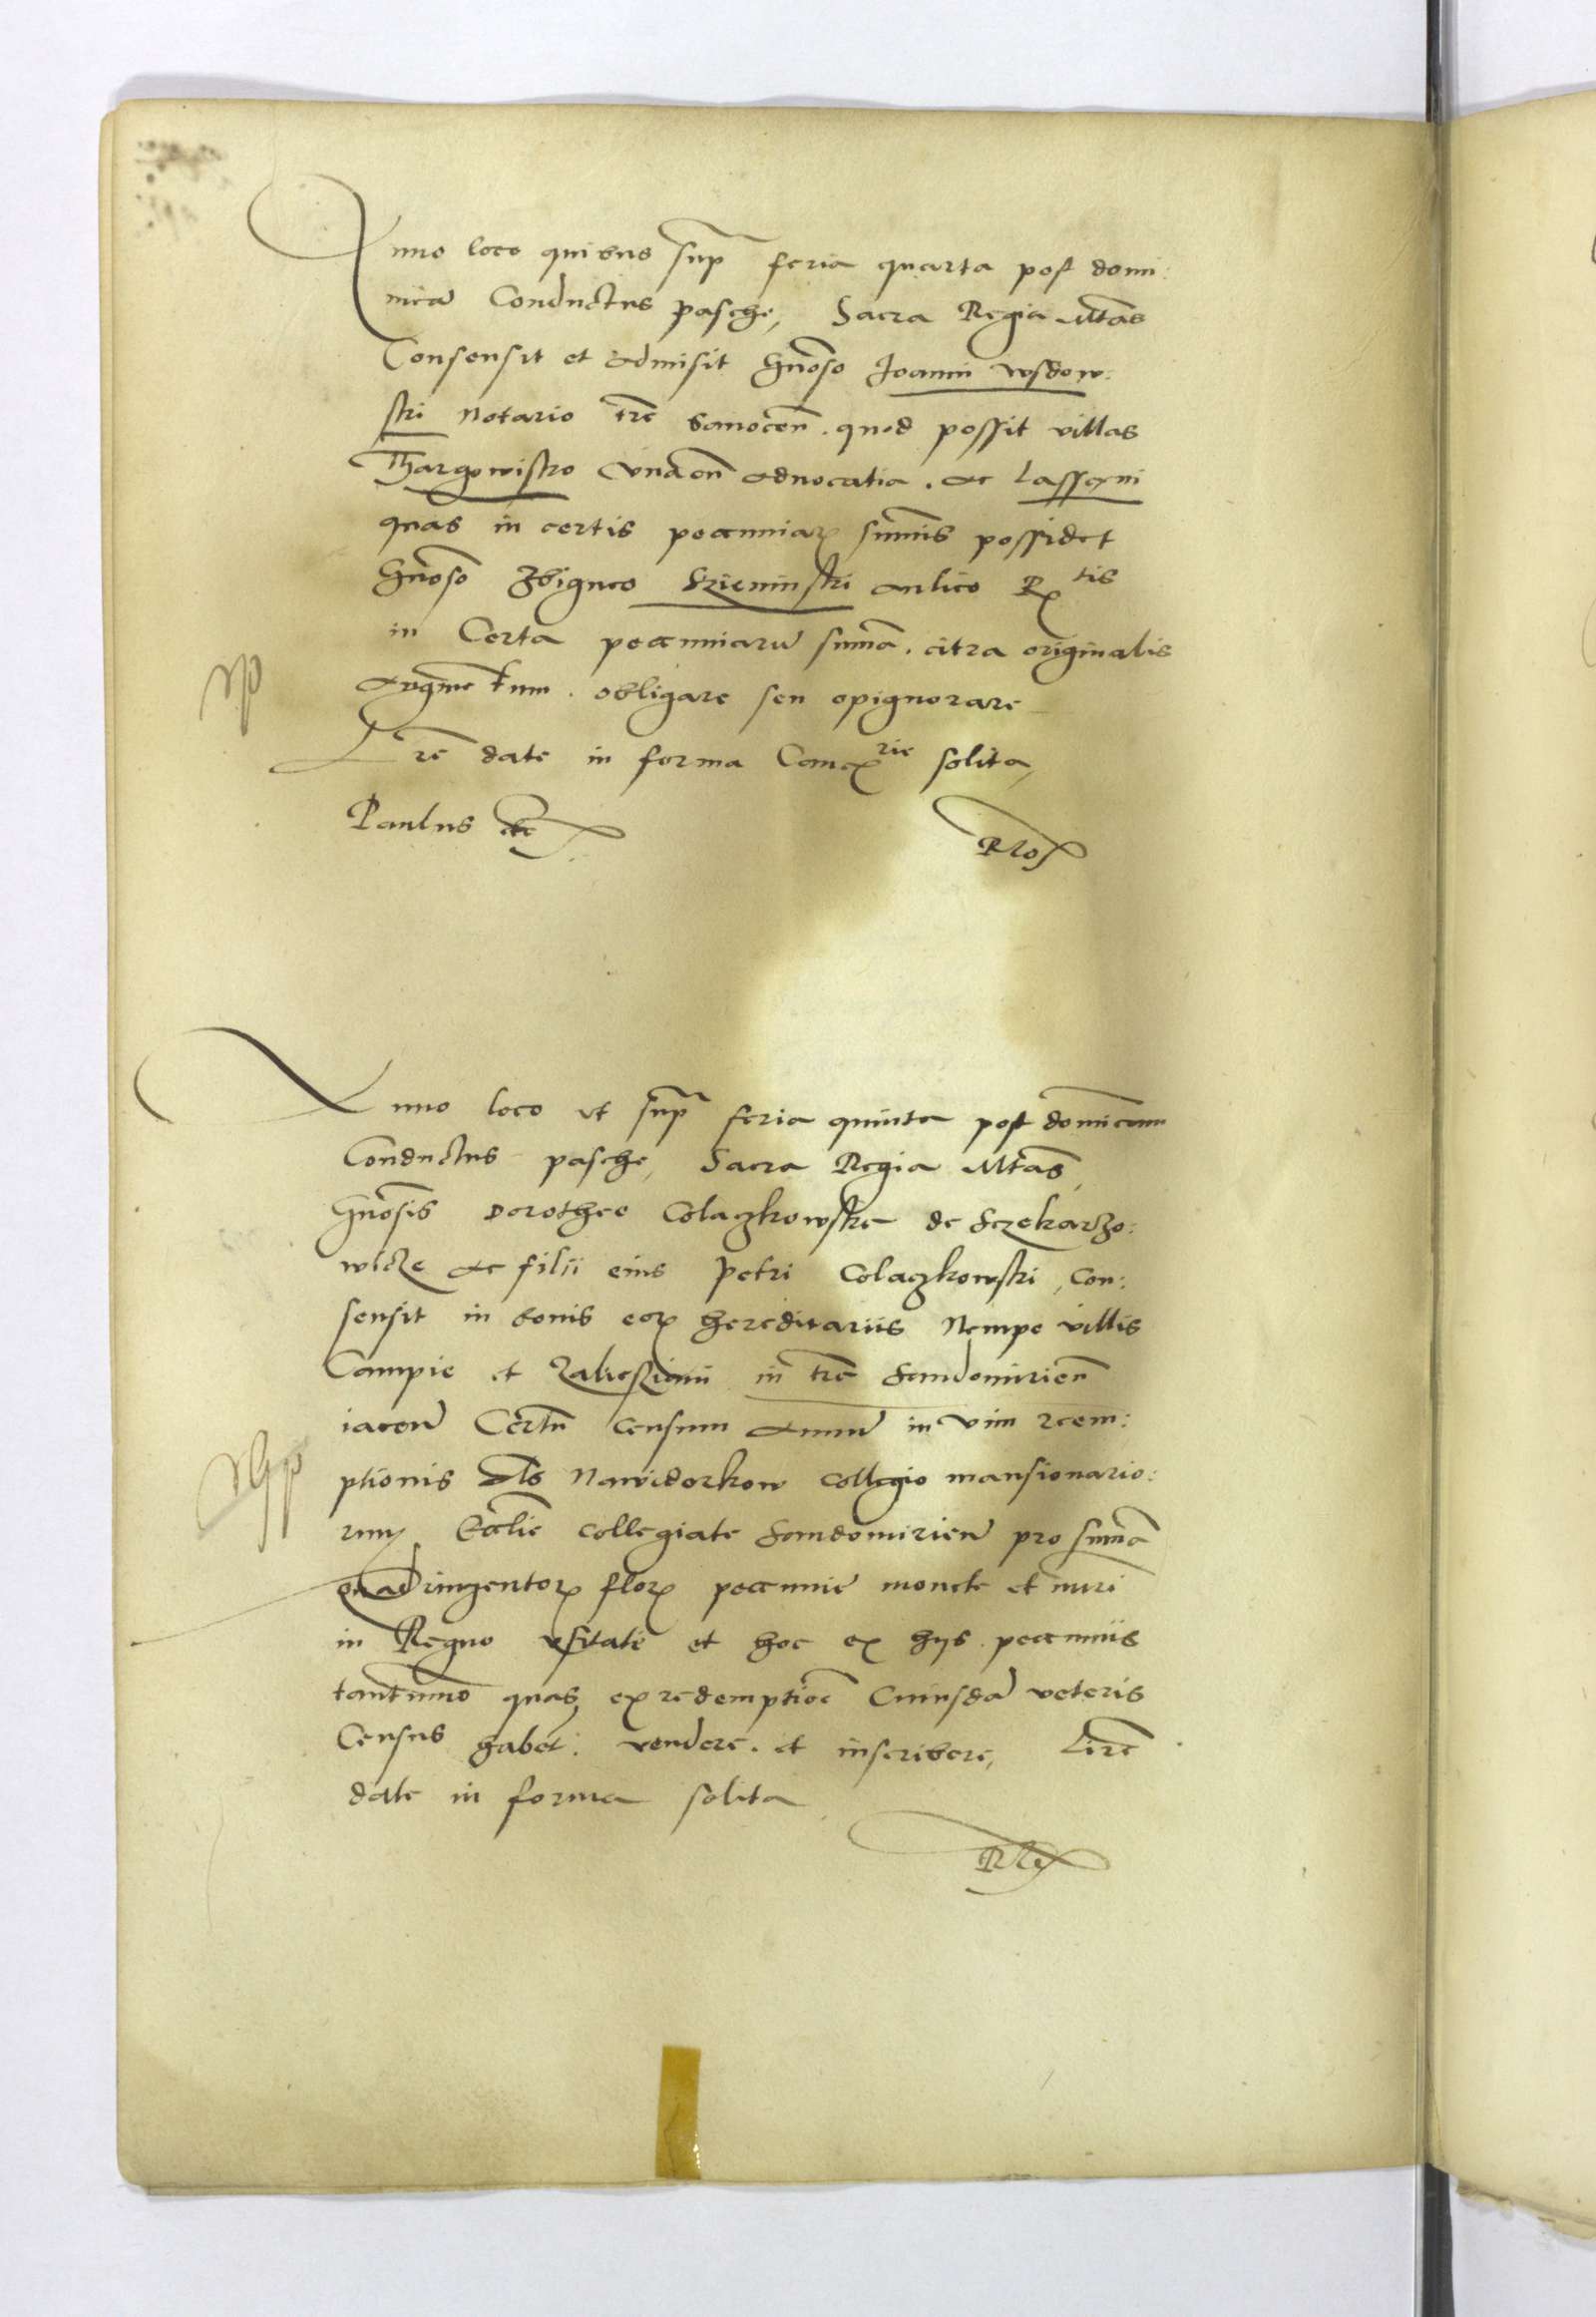 Anno loco quibus supͣ feria quarta post domi:
nicā Conductus pasche, Sacra Regia Mtās
Consensit et admisit Gnōso Joanni Wsdow:
ski Notario trē Sanocēn. quod possit villas
Thargowisko Vnacū advocatia. ac Lasseÿni
quas in certis pecuniaꝝ sum̄is possidet
Gnōso Zbigneo Szieninski aulico Rtis
in Certa pecuniarū sum̄a. citra originalis
Augmētum. obligare seu opignorare
Lrē date in forma Cancrie solita,
Paulus etc

Anno loco vt supͣ feria quinta post domīcam
Conductus pasche, Sacra Regia Mtās,
Gnōsis Dorothee Colaczkowska de Sczekarzo:
wicze ac filii eius Petri Colaczkowski, Con:
sensit in bonis eoꝝ hereditariis Nempe villis
Campie et in trē Sandomiriēn
iaceñ Certū Censum Annuū in vim reem:
ptionis als Nawiderkow Collegio mansionario:
rum Ecclīe Collegiate Sandomirieñ pro sum̄a
quadringentoꝝ floꝝ pecunie monete et nūri
in Regno vsitate et hoc ex hys pecuniis
tantummō quas ex redemptiōe Cuiusdā veteris
Census habet. vendere. et inscribere, Lirē
date in forma solita